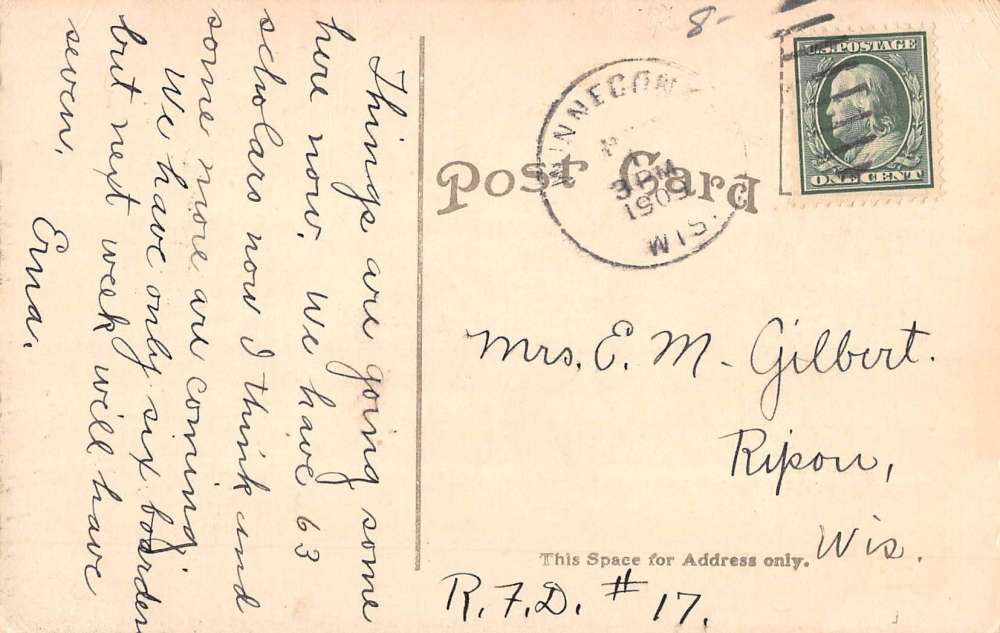 Things are going some
here now. We have 63
scholars now I think and
some more are coming.
We have only six boarders
but next week will have
seven.
Erna.
8-
U.S. POSTAGE
ONE CENT
WINNECON
3 PM
1909
WIS.
Post Card
Mrs. E. M. Gilbert.
Ripon,
Wis.
This Space for Address only.
R.F.D. # 17.